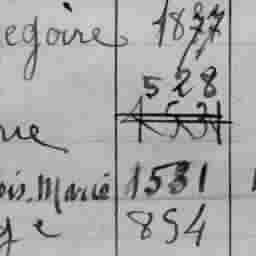 egoire 1877
528
ue
ois. Marie 1531
ge 854